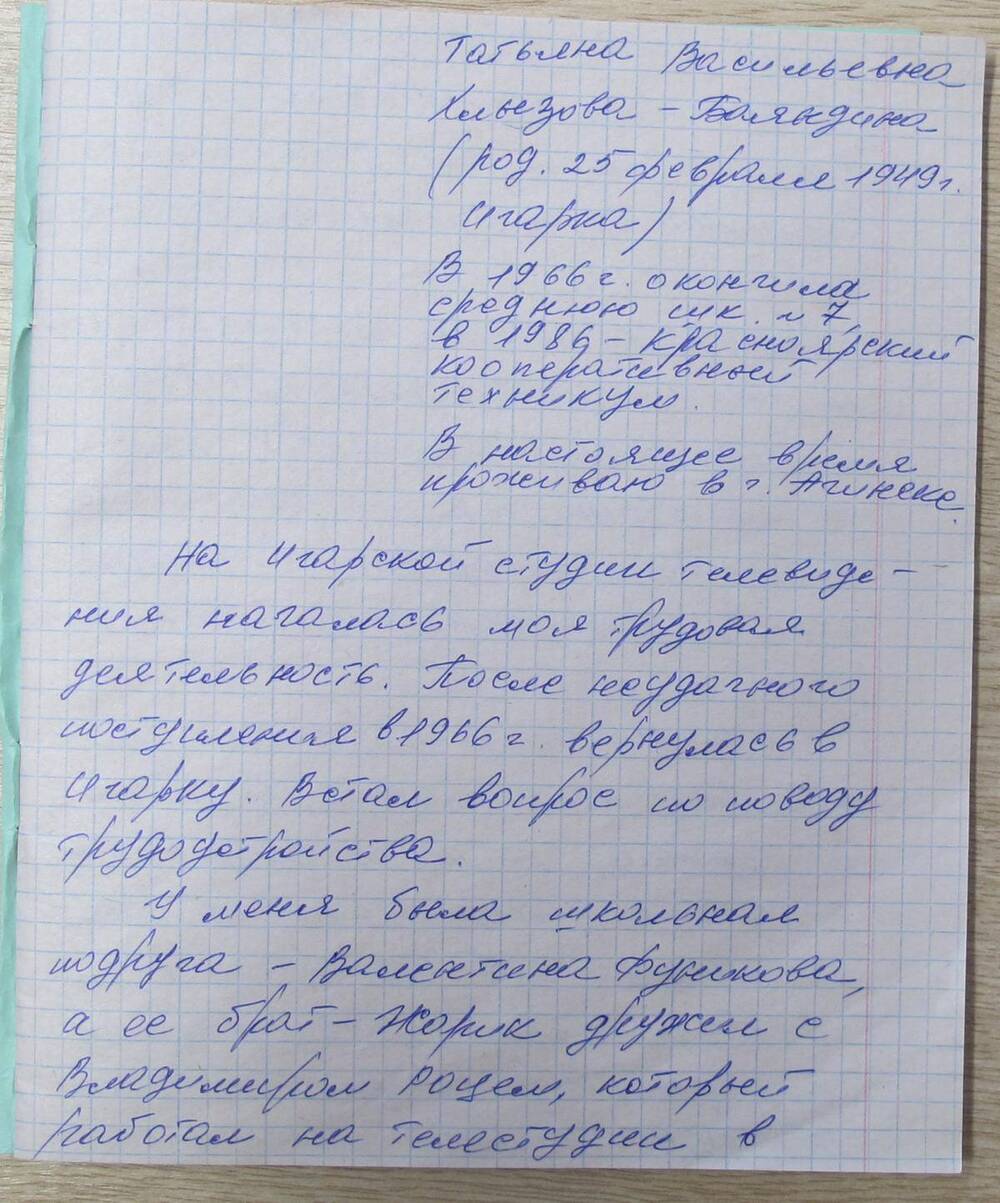 Татьяна Васильевна
Хлызова - Баяндина
(род. 25 февраля 1949 г.
Игарка)
В 1966 г. окончила
среднюю шк. № 7,
в 1986 - Красноярский
кооперативный
техникум.
В настоящее время
проживаю в г. Ачинске.
На Игарской студии телевиде-
ния началась моя трудовая
деятельность. После неудачного
поступления в 1966 г. вернулась в
Игарку. Встал вопрос по поводу
трудоустройства.
У меня была школьная
подруга - Валентина Фуникова,
а ее брат - Жорик дружил с
Владимиром Роцем, который
работал на телестудии в